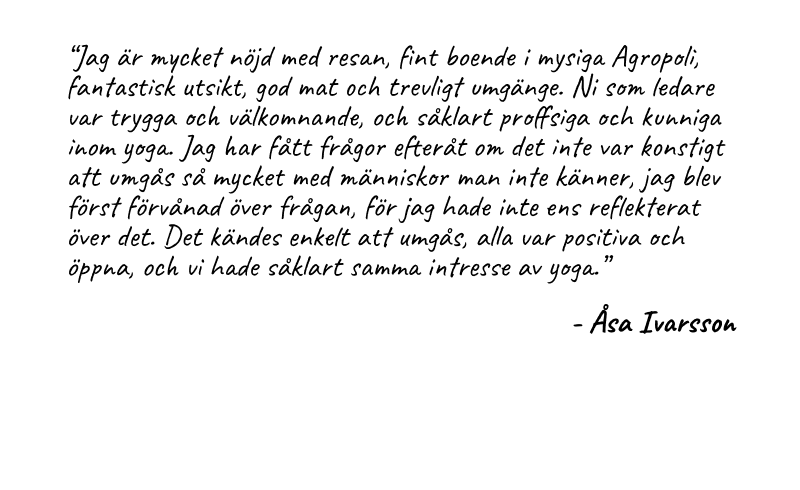 “Jag är mycket nöjd med resan, fint boende i mysiga Agropoli,
fantastisk utsikt, god mat och trevligt umgänge. Ni som ledare
var trygga och välkomnande, och såklart proffsiga och kunniga
inom yoga. Jag har fått frågor efteråt om det inte var konstigt
att umgås så mycket med människor man inte känner, jag blev
först förvånad över frågan, för jag hade inte ens reflekterat
över det. Det kändes enkelt att umgås, alla var positiva och
öppna, och vi hade såklart samma intresse av yoga.”
- Åsa Ivarsson